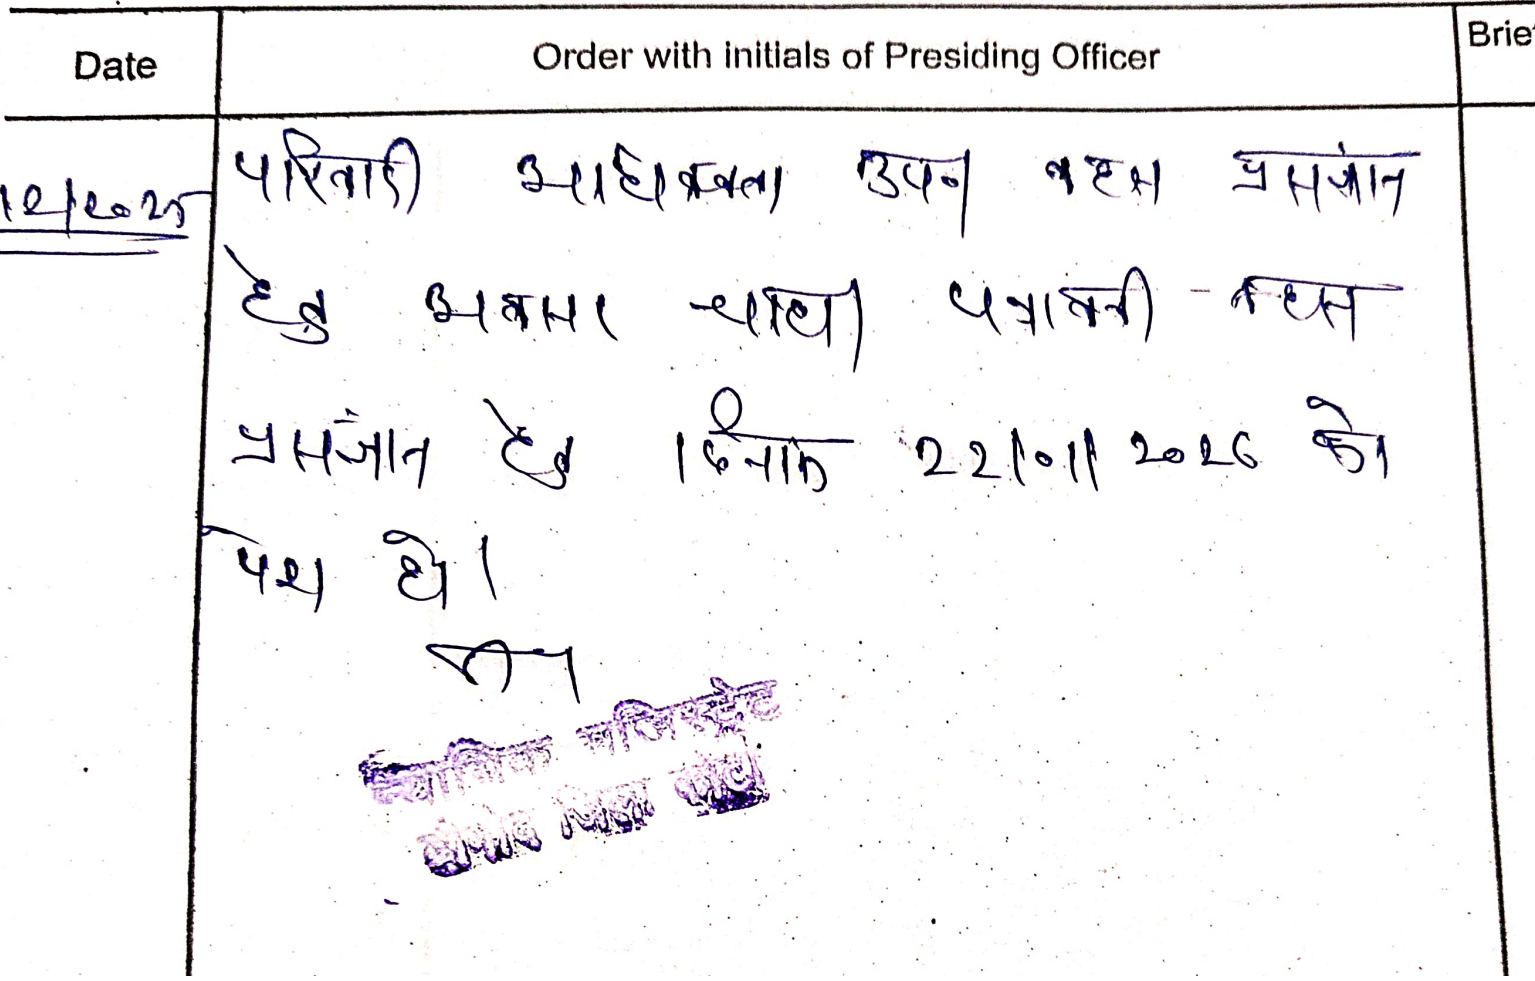 Date
Order with initials of Presiding Officer
Brie
12/2025
परिवादी अधिवक्ता उप० बहस प्रसंज्ञान
हेतु अवसर चाहा। पत्रावली बहस
प्रसंज्ञान हेतु दिनांक 22/01/2026 को
पेश हो।
न्यायिक मजिस्ट्रेट
जिला कोटा